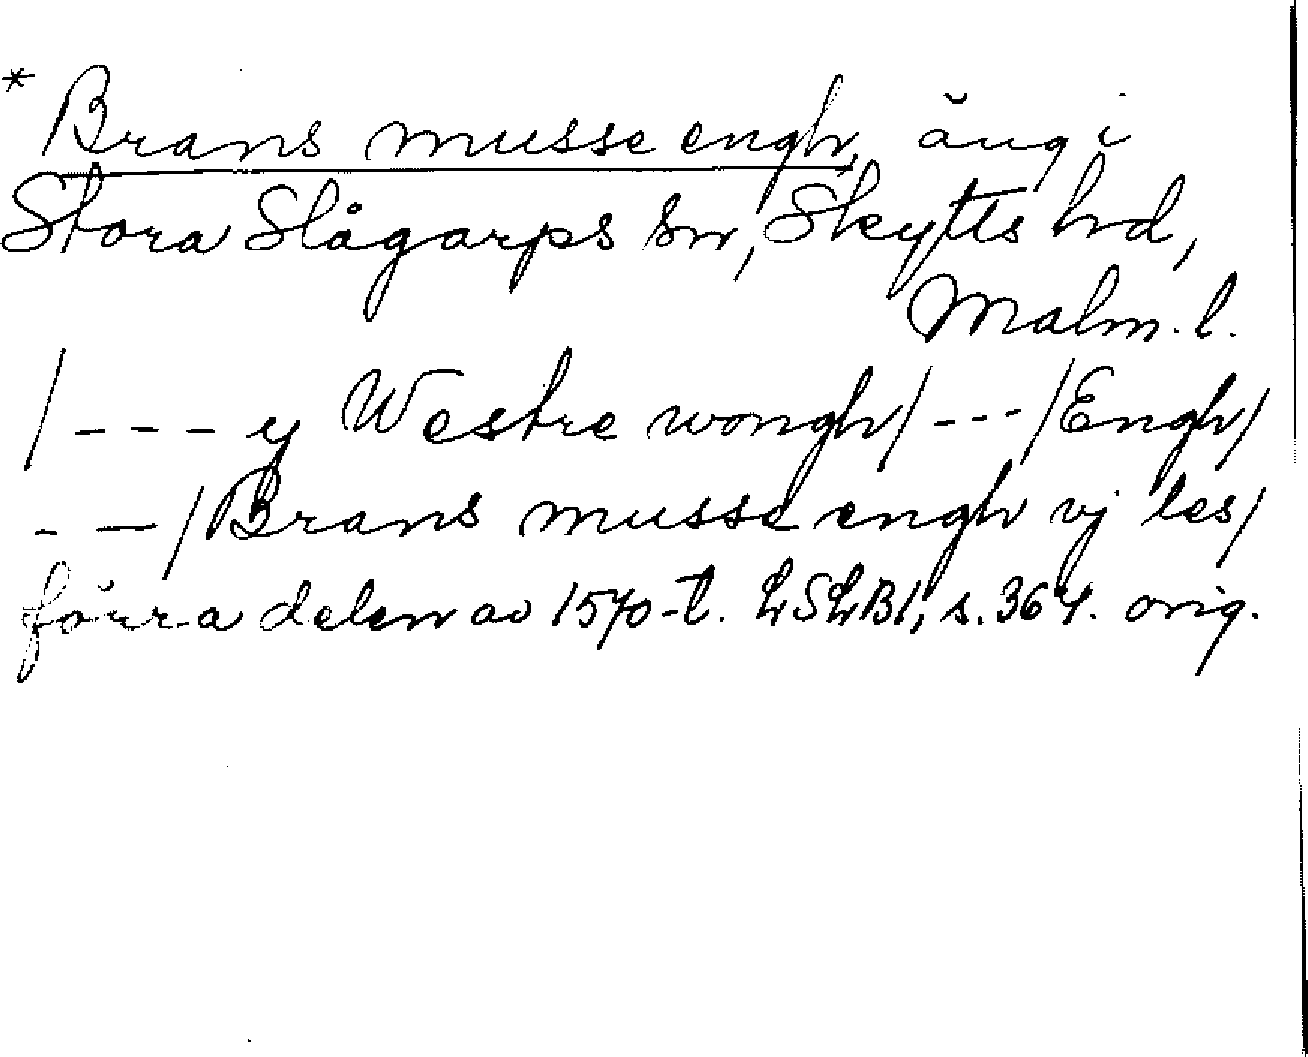 * Brans musse engh, äng i
Stora Slågarps sn, Skytts hd,
Malm. l.
/ - - - y Westre wongh/ - - - /Engh/
- - - /Brans musse engh vj les/
förra delen av 1570-t. LSLB1, s. 364. orig.